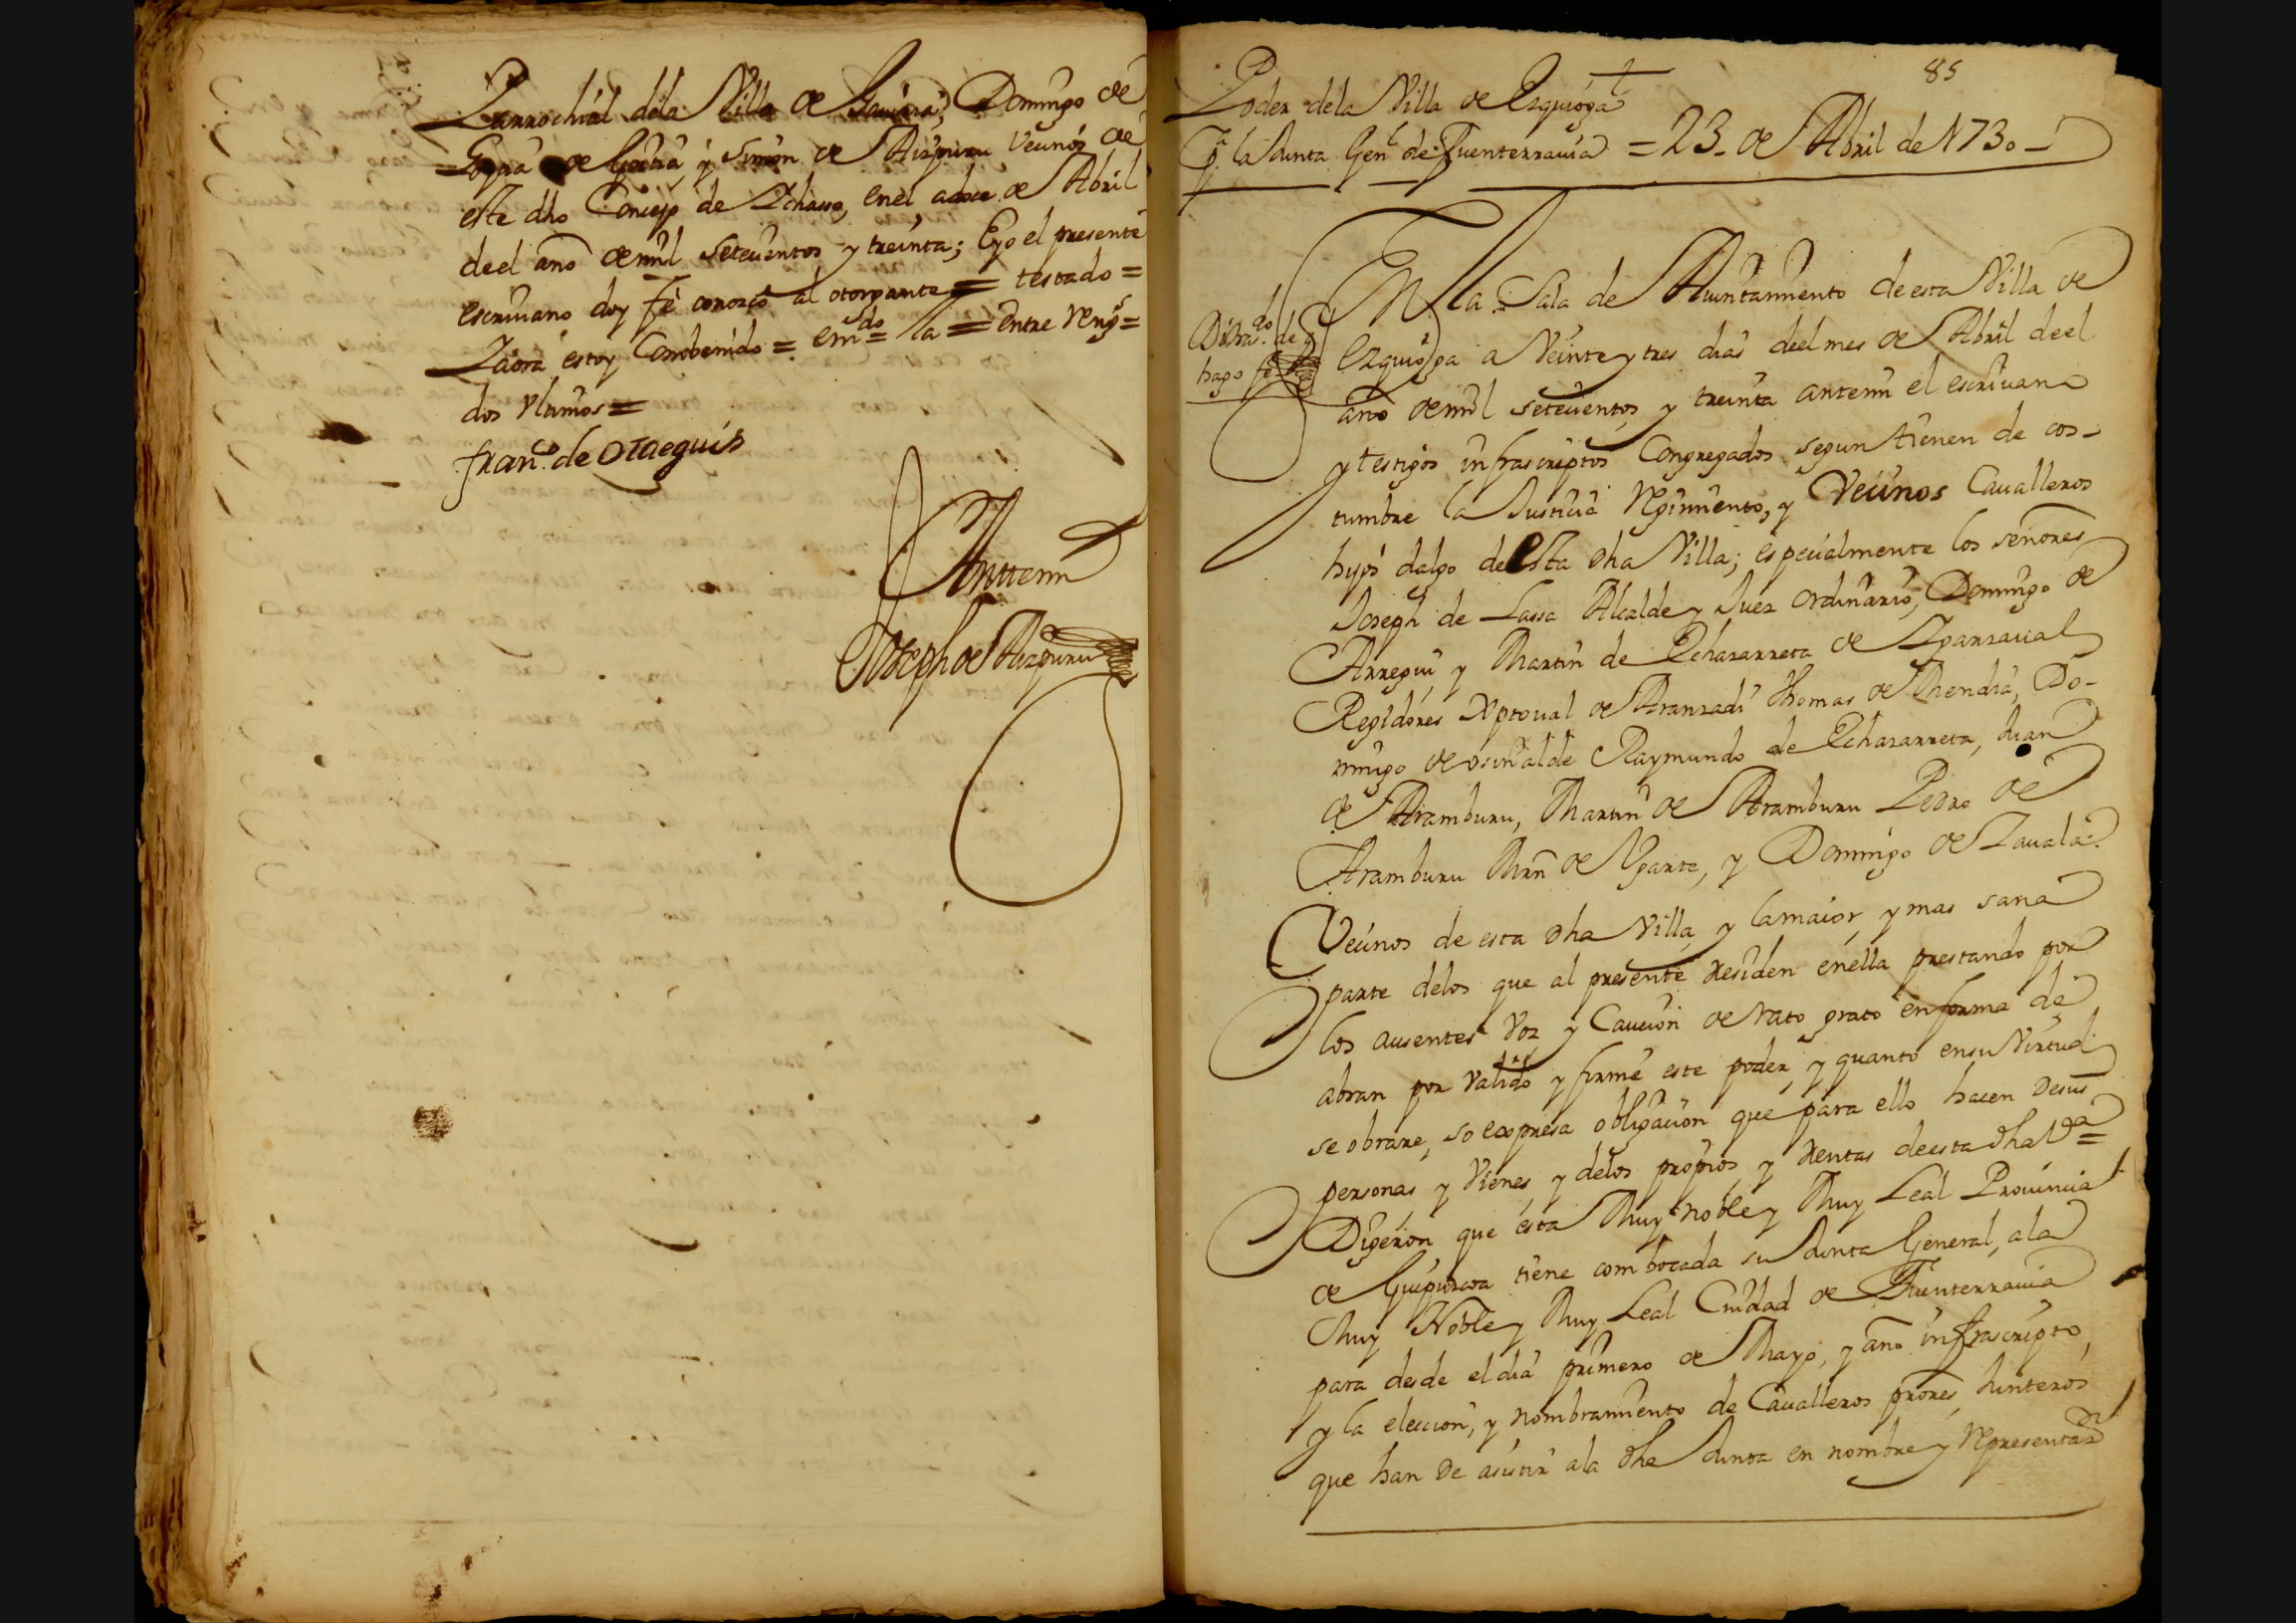 Parrochial dela Villa de Domingo de
Loyna de y Simon de Aizpuru Vecinos de
este dho Concejo de Ichasso, enel a doce de Abril
deel año de mill Setecientos y treinta; Eyo el presente
escrivano doy fe conozco al otorgante = testado =
Laora, estoy Conbenido = em.do = la = entre Reng.s =
dos Vltimos =
fran.co de Otaegui
Anttemi
Joseph de Aizpuru
85
Poder dela Villa de Ezquioga
p.a la Junta Gen.l de Fuenterrauia = 23. de Abril de 1730 -
En la Sala de Aiuntamiento de esta Villa de
do de y
hago fe
Ezquioga a Veinte y tres dias deel mes de Abril de el
año de mil setecientos, y treinta antemi el escriuano
y testigos infrascriptos Congregados segun tienen de cos-
tumbre la Justicia Regimiento, y Vecinos Caualleros
hijos dalgo de esta dha Villa; especialmente los señores
Joseph de Lassa Alcalde y Juez ordinario, Domingo de
Arregui y Martin de Echazarreta de Yparraual
Regidores Xptoual de Aranzadi Thomas de Mendia, Do-
mingo de osinalde Raymundo de Echazarreta, Juan
de Aramburu, Martin de Aramburu Pedro de
Aramburu Mrn de Vgarte, y Domingo de Zauala
Vecinos de esta dha Villa, y lamaior, y mas sana
parte delos que al presente residen enella prestando por
los ausentes Voz, y Caucion de rato grato enforma de
abran por valido y firme este poder, y quanto ensu Virtud
se obrare, so expresa obligacion que para ello hacen desus
personas y Vienes, y delos propios, y rentas deesta dha V.a =
Digeron que esta Muy noble y Muy Leal Prouincia
de Guipuzcoa tiene combocada su Junta General, ala
Muy Noble y Muy Leal Ciudad de Fuenterrauia
para desde el dia primero de Mayo, y año infrascripto,
y la eleccion, y nombramiento de Caualleros prores Junteros
que han de asistir ala dha Junta en nombre y Representaz.on